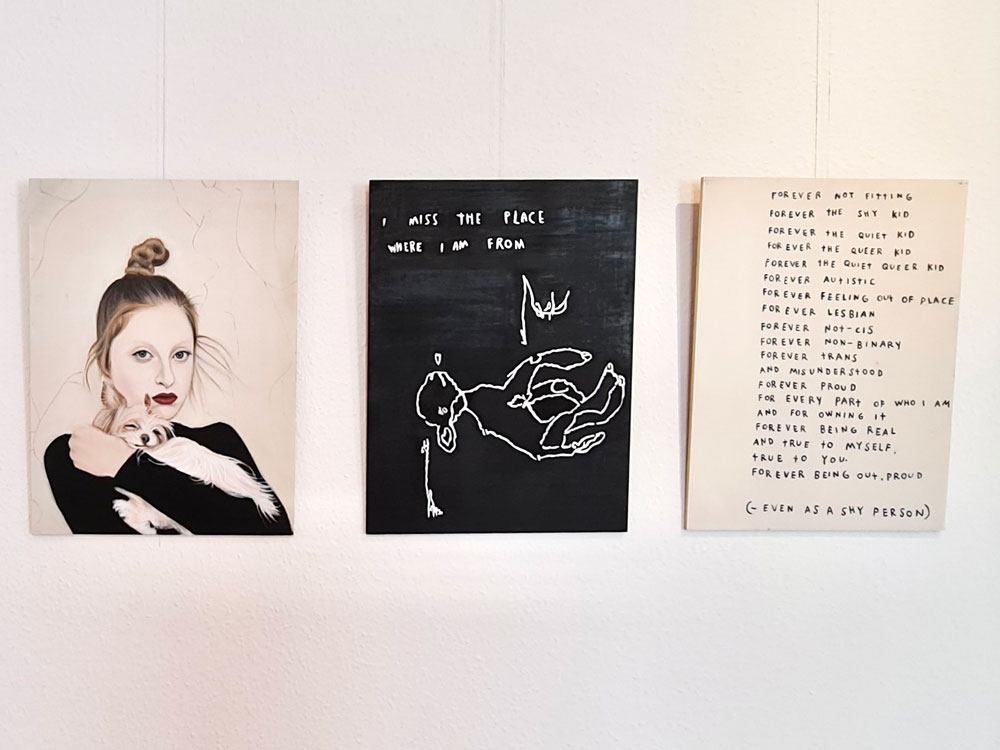 I MISS THE PLACE
WHERE I AM FROM
FOREVER NOT FITTING
FOREVER THE SHY KID
FOREVER THE QUIET KID
FOREVER THE QUEER KID
FOREVER THE QUIET QUEER KID
FOREVER AUTISTIC
FOREVER FEELING OUT OF PLACE
FOREVER LESBIAN
FOREVER NOT-CIS
FOREVER NON-BINARY
FOREVER TRANS
AND MISUNDERSTOOD
FOREVER PROUD
FOR EVERY PART OF WHO I AM
AND FOR OWNING IT
FOREVER BEING REAL
AND TRUE TO MYSELF,
TRUE TO YOU.
FOREVER BEING OUT, PROUD
(- EVEN AS A SHY PERSON)